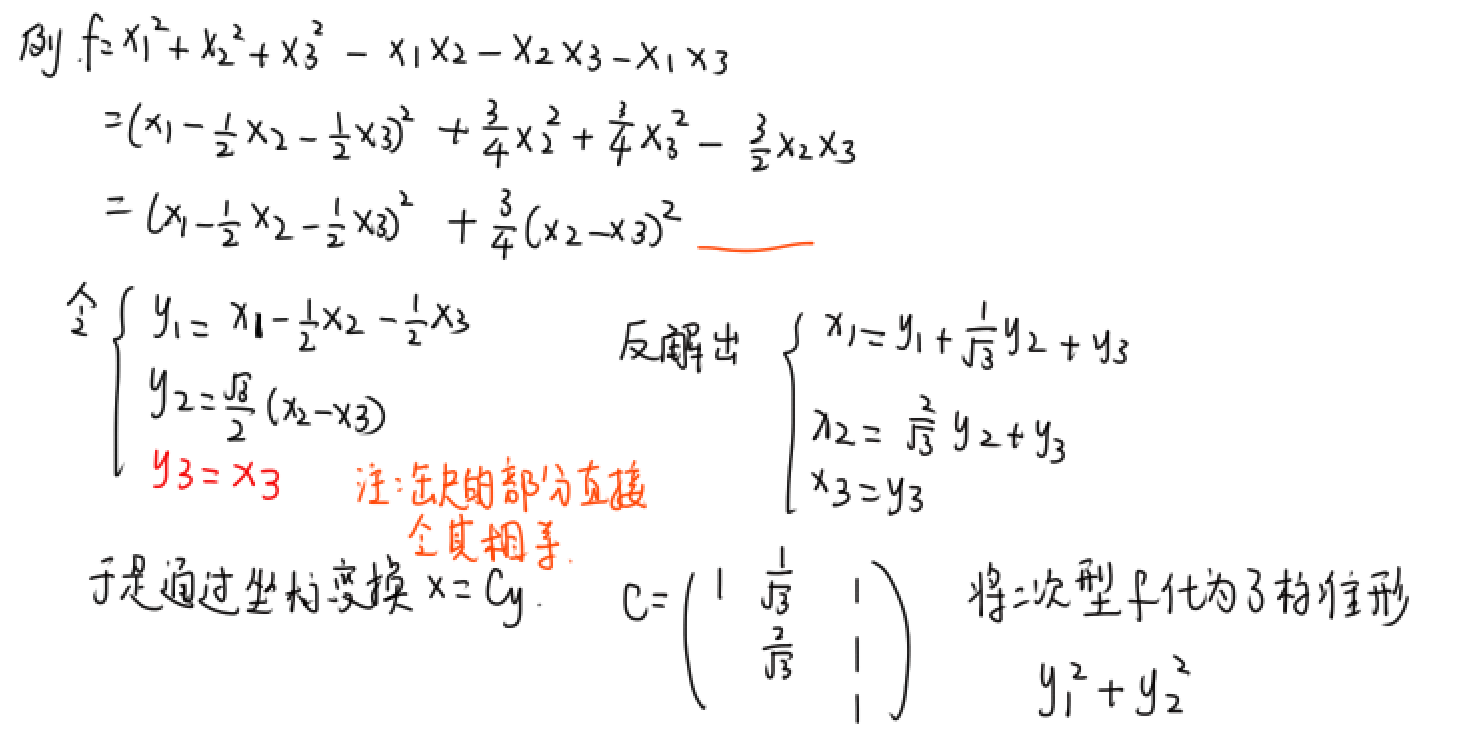 例 f=x₁²+x₂²+x₃²-x₁x₂-x₂x₃-x₁x₃
=(x₁-1/2x₂-1/2x₃)²+3/4x₂²+3/4x₃²-3/2x₂x₃
=(x₁-1/2x₂-1/2x₃)²+3/4(x₂-x₃)²
令 { y₁=x₁-1/2x₂-1/2x₃
y₂=√3/2(x₂-x₃)
y₃=x₃
注:缺的部分直接
令其相等.
反解出 { x₁=y₁+1/√3y₂+y₃
x₂=2/√3y₂+y₃
x₃=y₃
于是通过坐标变换 x=Cy. C=( 1 1/√3 1
2/√3 1
1 ) 将二次型f化为了标准形
y₁²+y₂²